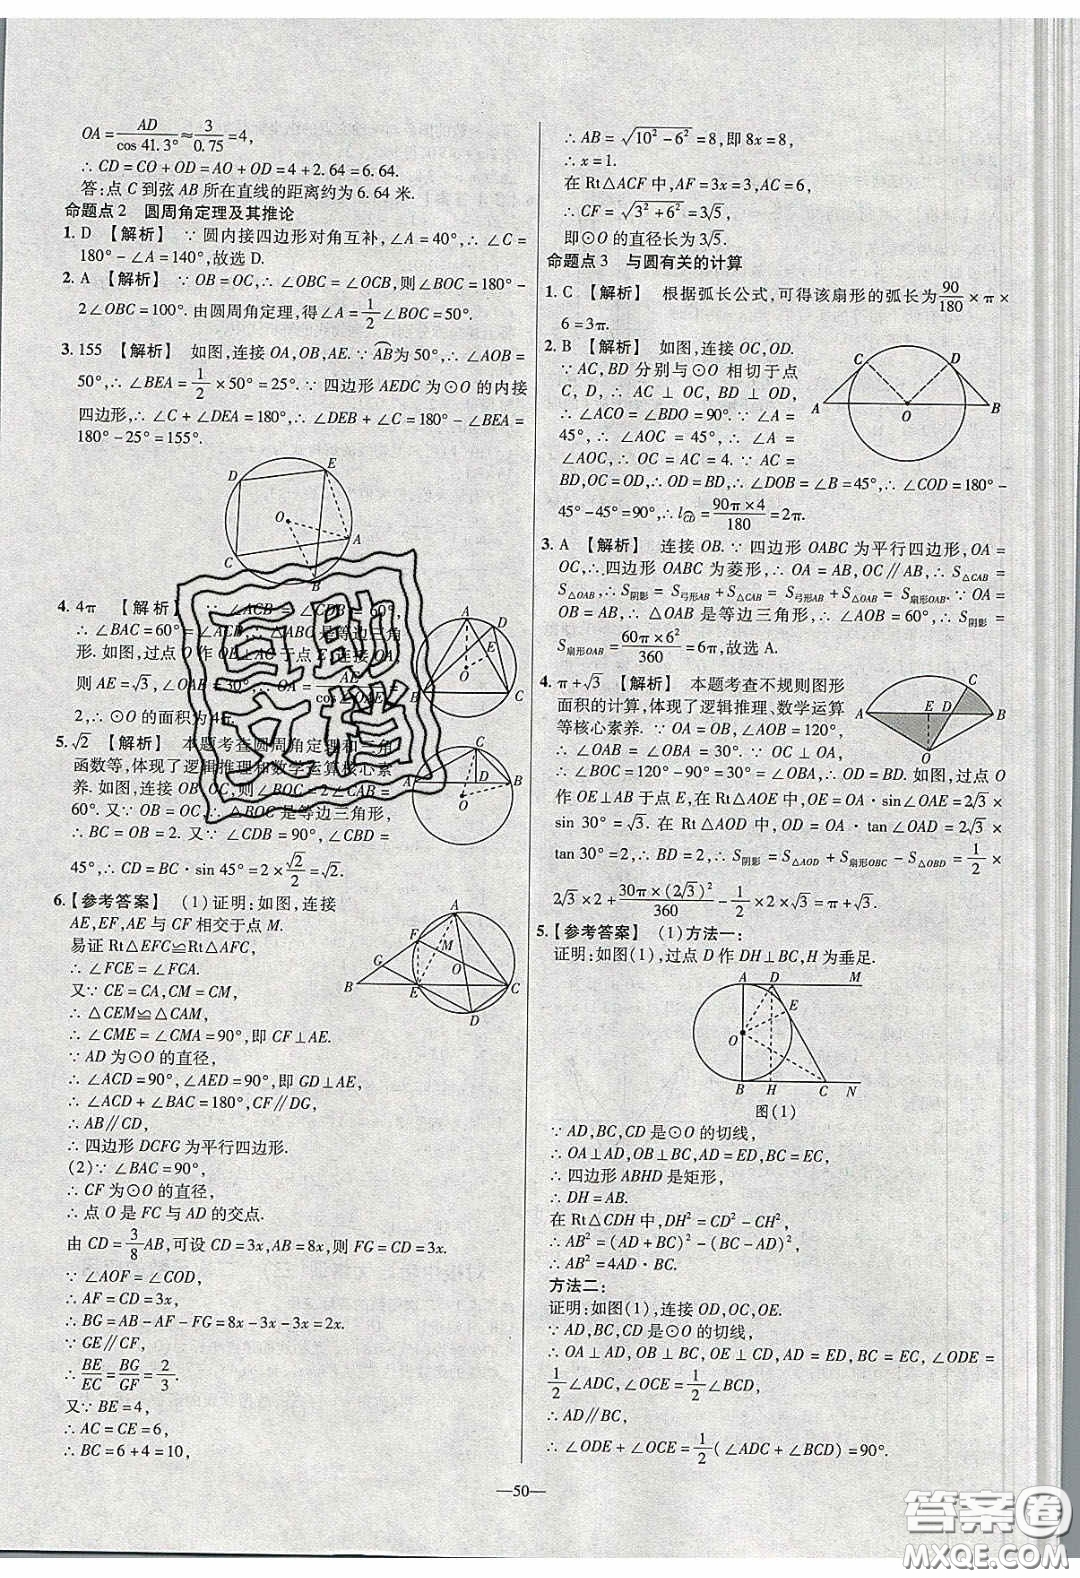 OA=AD/cos 41.3°≈3/0.75=4,
∴CD=CO+OD=AO+OD=4+2.64=6.64.
答:点C到弦AB所在直线的距离约为6.64米.
命题点2 圆周角定理及其推论
1. D 【解析】 ∵圆内接四边形对角互补,∠A=40°,∴∠C=
180°-∠A=140°,故选D.
2. A 【解析】 ∵OB=OC,∴∠OBC=∠OCB,则∠BOC=180°-
2∠OBC=180°-2×40°=100°.由圆周角定理,得∠A=1/2∠BOC=50°.
3. 155 【解析】 如图,连接OA,OB,AE.∵AB⌒为50°,∴∠AOB=
50°,∴∠BEA=1/2×50°=25°.∵四边形AEDC为⊙O的内接
四边形,∴∠C+∠DEA=180°,∴∠DEB+∠C=180°-∠BEA=
180°-25°=155°.
D E O A C B
4. 4π 【解析】 ∵∠ACB=∠CDB=60°,
∴∠BAC=60°=∠ACB,∴△ABC是等边三角
形.如图,过点O作OE⊥AC于点E,连接OA,
则AE=√3,∠OAE=30°,∴OA=AE/cos∠OAE=
2,∴⊙O的面积为4π.
A D E O B C
5. √2 【解析】 本题考查圆周角定理和三角
函数等,体现了逻辑推理和数学运算核心素
养.如图,连接OB,OC,则∠BOC=2∠CAB=
60°.又∵OB=OC,∴△OBC是等边三角形,
∴BC=OB=2.又∵∠CDB=90°,∠CBD=
45°,∴CD=BC·sin 45°=2×√2/2=√2.
C A D B O
6. 【参考答案】 (1)证明:如图,连接
AE,EF,AE与CF相交于点M.
易证Rt△EFC≌Rt△AFC,
∴∠FCE=∠FCA.
又∵CE=CA,CM=CM,
∴△CEM≌△CAM,
∴∠CME=∠CMA=90°,即CF⊥AE.
∵AD为⊙O的直径,
∴∠ACD=90°,∠AED=90°,即GD⊥AE,
∴∠ACD+∠BAC=180°,CF∥DG,
∴AB∥CD,
∴四边形DCFG为平行四边形.
A F M G O B E C D
(2)∵∠BAC=90°,
∴CF为⊙O的直径,
∴点O是FC与AD的交点.
由CD=3/8AB,可设CD=3x,AB=8x,则FG=CD=3x.
∵∠AOF=∠COD,
∴AF=CD=3x,
∴BG=AB-AF-FG=8x-3x-3x=2x.
∵GE∥CF,
∴BE/EC=BG/GF=2/3.
又∵BE=4,
∴AC=CE=6,
∴BC=6+4=10,
∴AB=√(10²-6²)=8,即8x=8,
∴x=1.
在Rt△ACF中,AF=3x=3,AC=6,
∴CF=√(3²+6²)=3√5,
即⊙O的直径长为3√5.
命题点3 与圆有关的计算
1. C 【解析】 根据弧长公式,可得该扇形的弧长为90/180×π×
6=3π.
2. B 【解析】 如图,连接OC,OD.
∵AC,BD分别与⊙O相切于点
C,D,∴AC⊥OC,BD⊥OD,
∴∠ACO=∠BDO=90°.∵∠A=
45°,∴∠AOC=45°,∴∠A=
∠AOC,∴OC=AC=4.∵AC=
BD,OC=OD,∴OD=BD,∴∠DOB=∠B=45°,∴∠COD=180°-
45°-45°=90°,∴l CD⌒=90π×4/180=2π.
C D A O B
3. A 【解析】 连接OB.∵四边形OABC为平行四边形,OA=
OC,∴四边形OABC为菱形,∴OA=AB,OC∥AB,∴S△CAB=
S△OAB,∴S阴影=S弓形AB+S△CAB=S弓形AB+S△OAB=S扇形OAB.∵OA=
OB=AB,∴△OAB是等边三角形,∴∠AOB=60°,∴S阴影=
S扇形OAB=60π×6²/360=6π,故选A.
4. π+√3 【解析】 本题考查不规则图形
面积的计算,体现了逻辑推理、数学运算
等核心素养.∵OA=OB,∠AOB=120°,
∴∠OAB=∠OBA=30°.∵OC⊥OA,
∴∠BOC=120°-90°=30°=∠OBA,∴OD=BD.如图,过点O
作OE⊥AB于点E,在Rt△AOE中,OE=OA·sin∠OAE=2√3×
sin 30°=√3.在Rt△AOD中,OD=OA·tan∠OAD=2√3×
tan 30°=2,∴BD=2,∴S阴影=S△AOD+S扇形OBC-S△OBD=1/2×
2√3×2+30π×(2√3)²/360-1/2×2×√3=π+√3.
C E D A B O
5. 【参考答案】 (1)方法一:
证明:如图(1),过点D作DH⊥BC,H为垂足.
A D M E O B H C N
图(1)
∵AD,BC,CD是⊙O的切线,
∴OA⊥AD,OB⊥BC,AD=ED,BC=EC,
∴四边形ABHD是矩形,
∴DH=AB.
在Rt△CDH中,DH²=CD²-CH²,
∴AB²=(AD+BC)²-(BC-AD)²,
∴AB²=4AD·BC.
方法二:
证明:如图(1),连接OD,OC,OE.
∵AD,BC,CD是⊙O的切线,
∴OA⊥AD,OB⊥BC,OE⊥CD,AD=ED,BC=EC,∠ODE=
1/2∠ADC,∠OCE=1/2∠BCD,
∴AD∥BC,
∴∠ODE+∠OCE=1/2(∠ADC+∠BCD)=90°.
—50—
百助
文档
答案圈
MXQE.COM